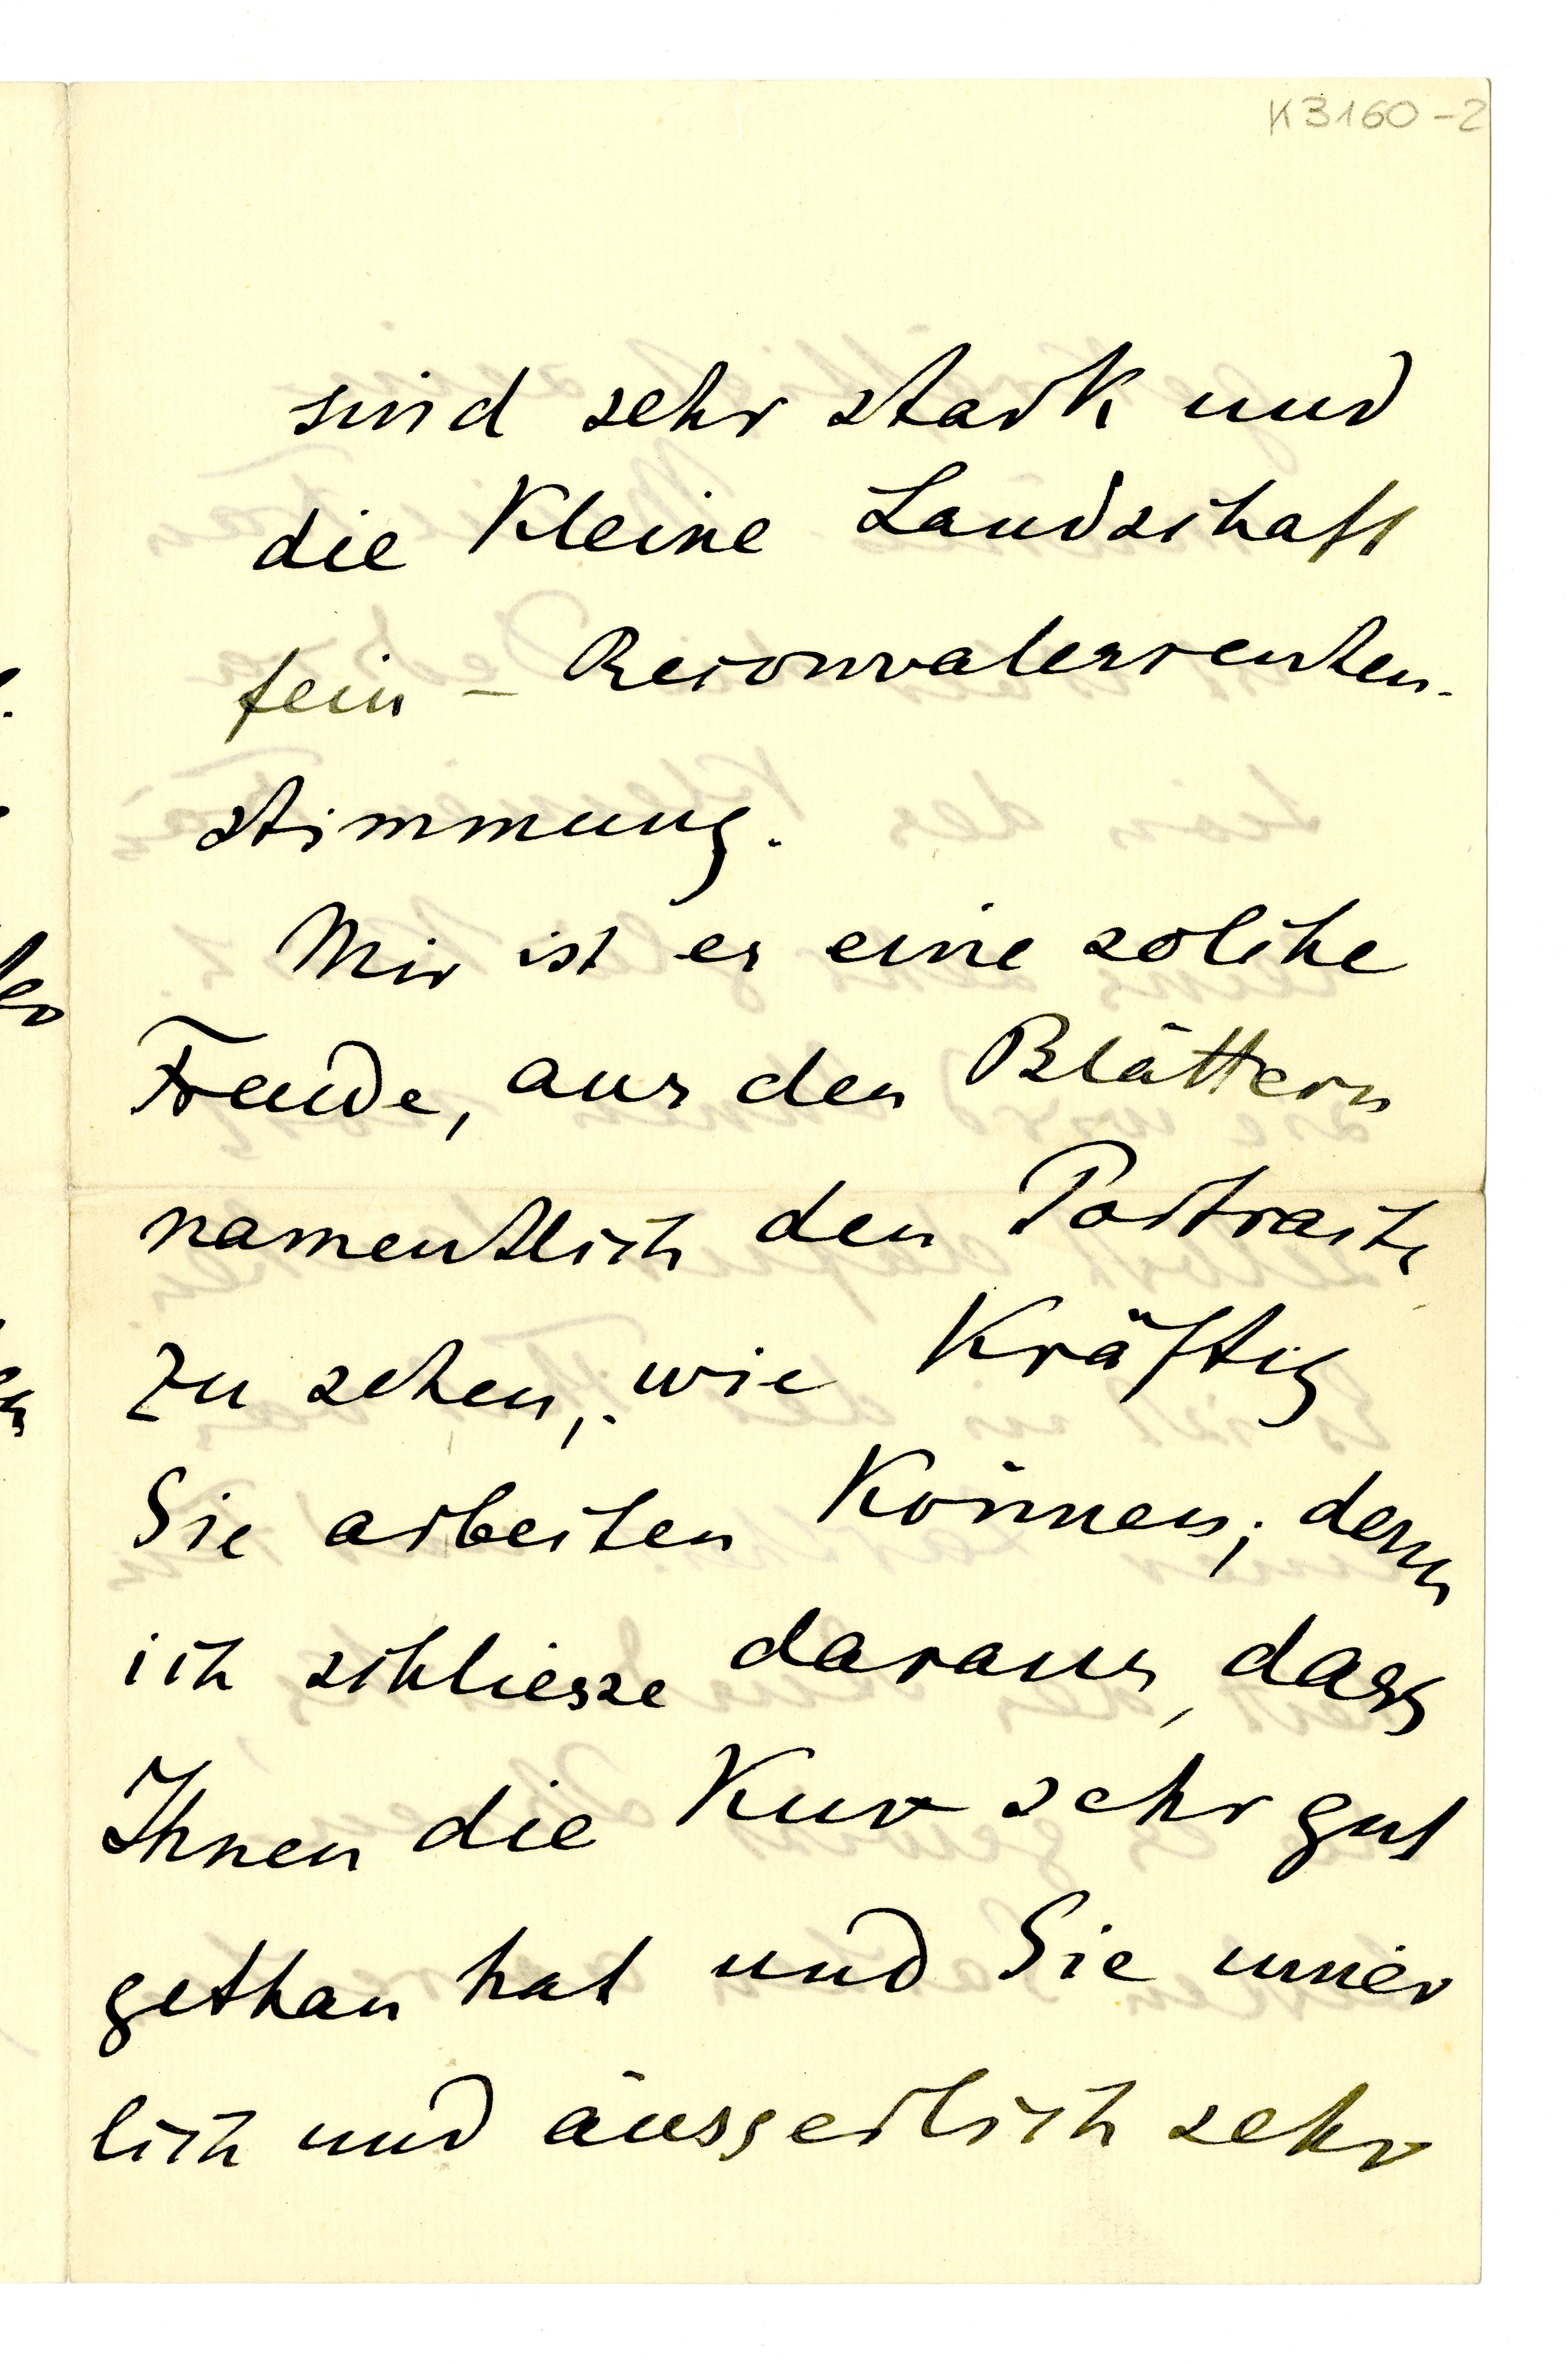 K3160-2
sind sehr stark und
die Kleine Landschaft
fein – Reconvalescenten-
stimmung.
Mir ist es eine solche
Freude, aus den Blättern
namentlich den Portraits
zu sehen, wie Kräftig
Sie arbeiten Können; denn
ich schliesse daraus, dass
Ihnen die Kur sehr gut
gethan hat und Sie inner
lich und äusserlich sehr